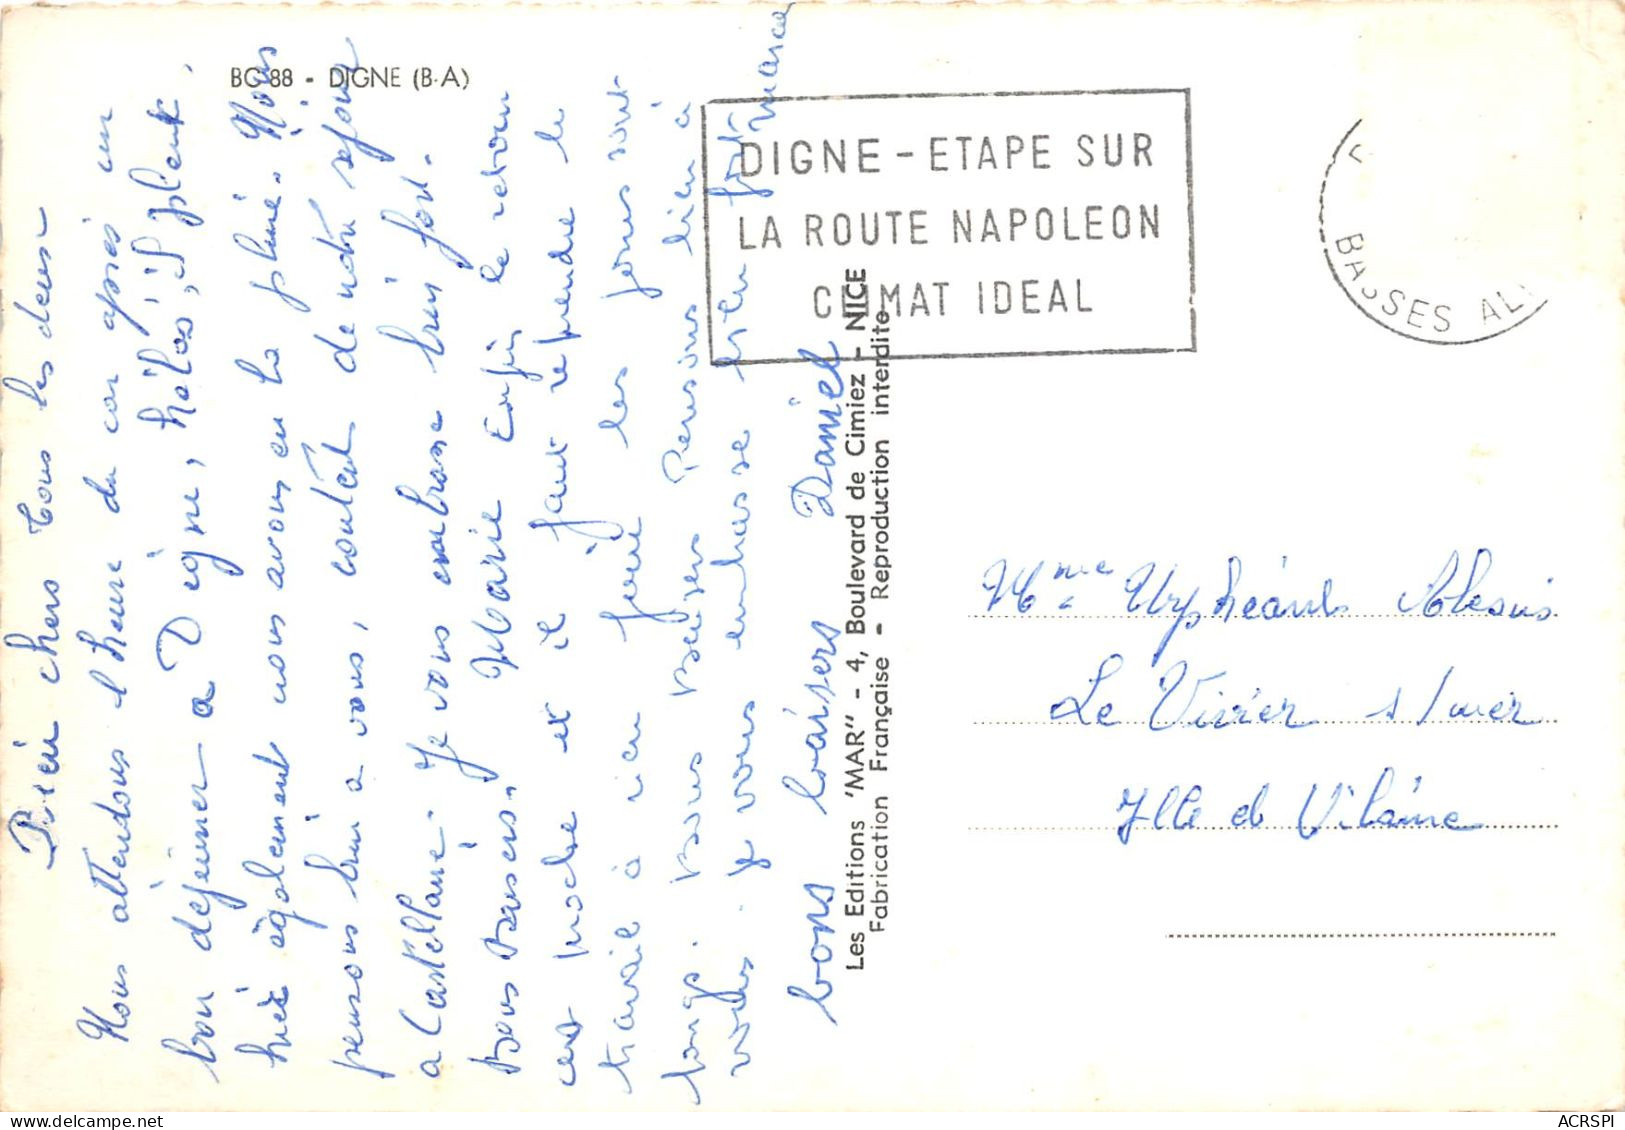 BG 88 - DIGNE (B-A)
Bien chers tous les deux
Nous attendons l'heure du car après un
bon déjeuner a Digne, hélas, il pleut.
hier également nous avons eu la pluie. Nous
pensons bien a vous, content de notre séjour
a Castellane. Je vous embrasse bien fort.
Bons Baisers. Marie Enfin le retour
est proche et il faut reprendre le
travail à rien faire les jours sont
longs. Bons Baisers Pensons bien à
vous. Je vous embrasse bien fort Marcel
bons baisers Daniel
DIGNE - ETAPE SUR
LA ROUTE NAPOLEON
CLIMAT IDEAL
BASSES AL
Les Editions "MAR" - 4, Boulevard de Cimiez - NICE
Fabrication Française - Reproduction interdite
Mme
Le Vivier s/mer
Ille et Vilaine
ACRSPI